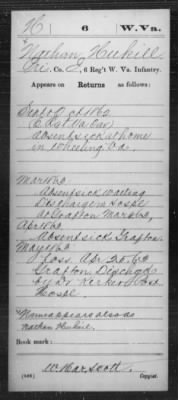 H | 6 | W. Va.
Nathan Hukill
Pvt. Co. C, 6 Reg't W. Va. Infantry.
Appears on Returns as follows:
Sept & Oct 1862
absent sick at home
in Wheeling Va.
Mar 1863
Absent sick Waiting
Discharge in Hospl
at Grafton Mar 63
Apr 1863
Absent sick Grafton
May 1863
Loss. Apr 25, 63
Grafton Dischgd
by Post
Hospl.
Name appears also as
Nathan
Book mark:
W. Mar Scott
(546) Copyist.